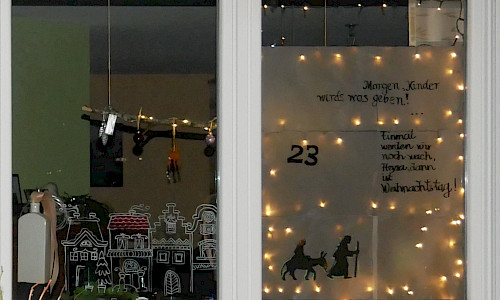 Morgen, Kinder
wird's was geben!
...
23
Einmal
werden wir
noch wach,
Heysa, dann
ist
Weihnachtstag!